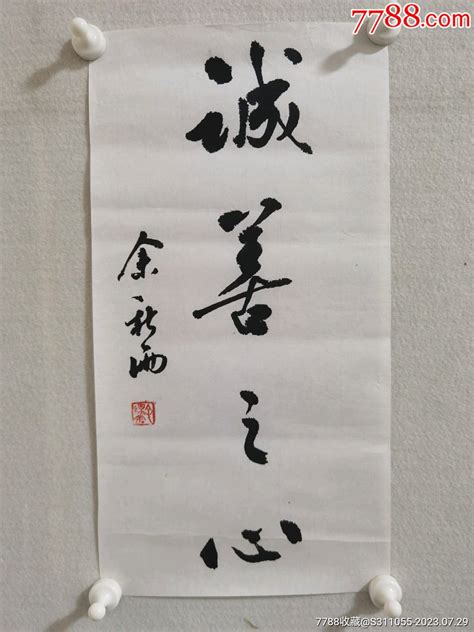 7788.com
诚善之心
余秋雨
7788收藏@S311055-2023.07.29